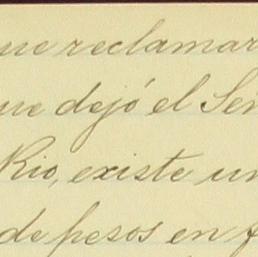 ue reclamar
ue dejó el Señ
Rio, existe un
de pesos en f